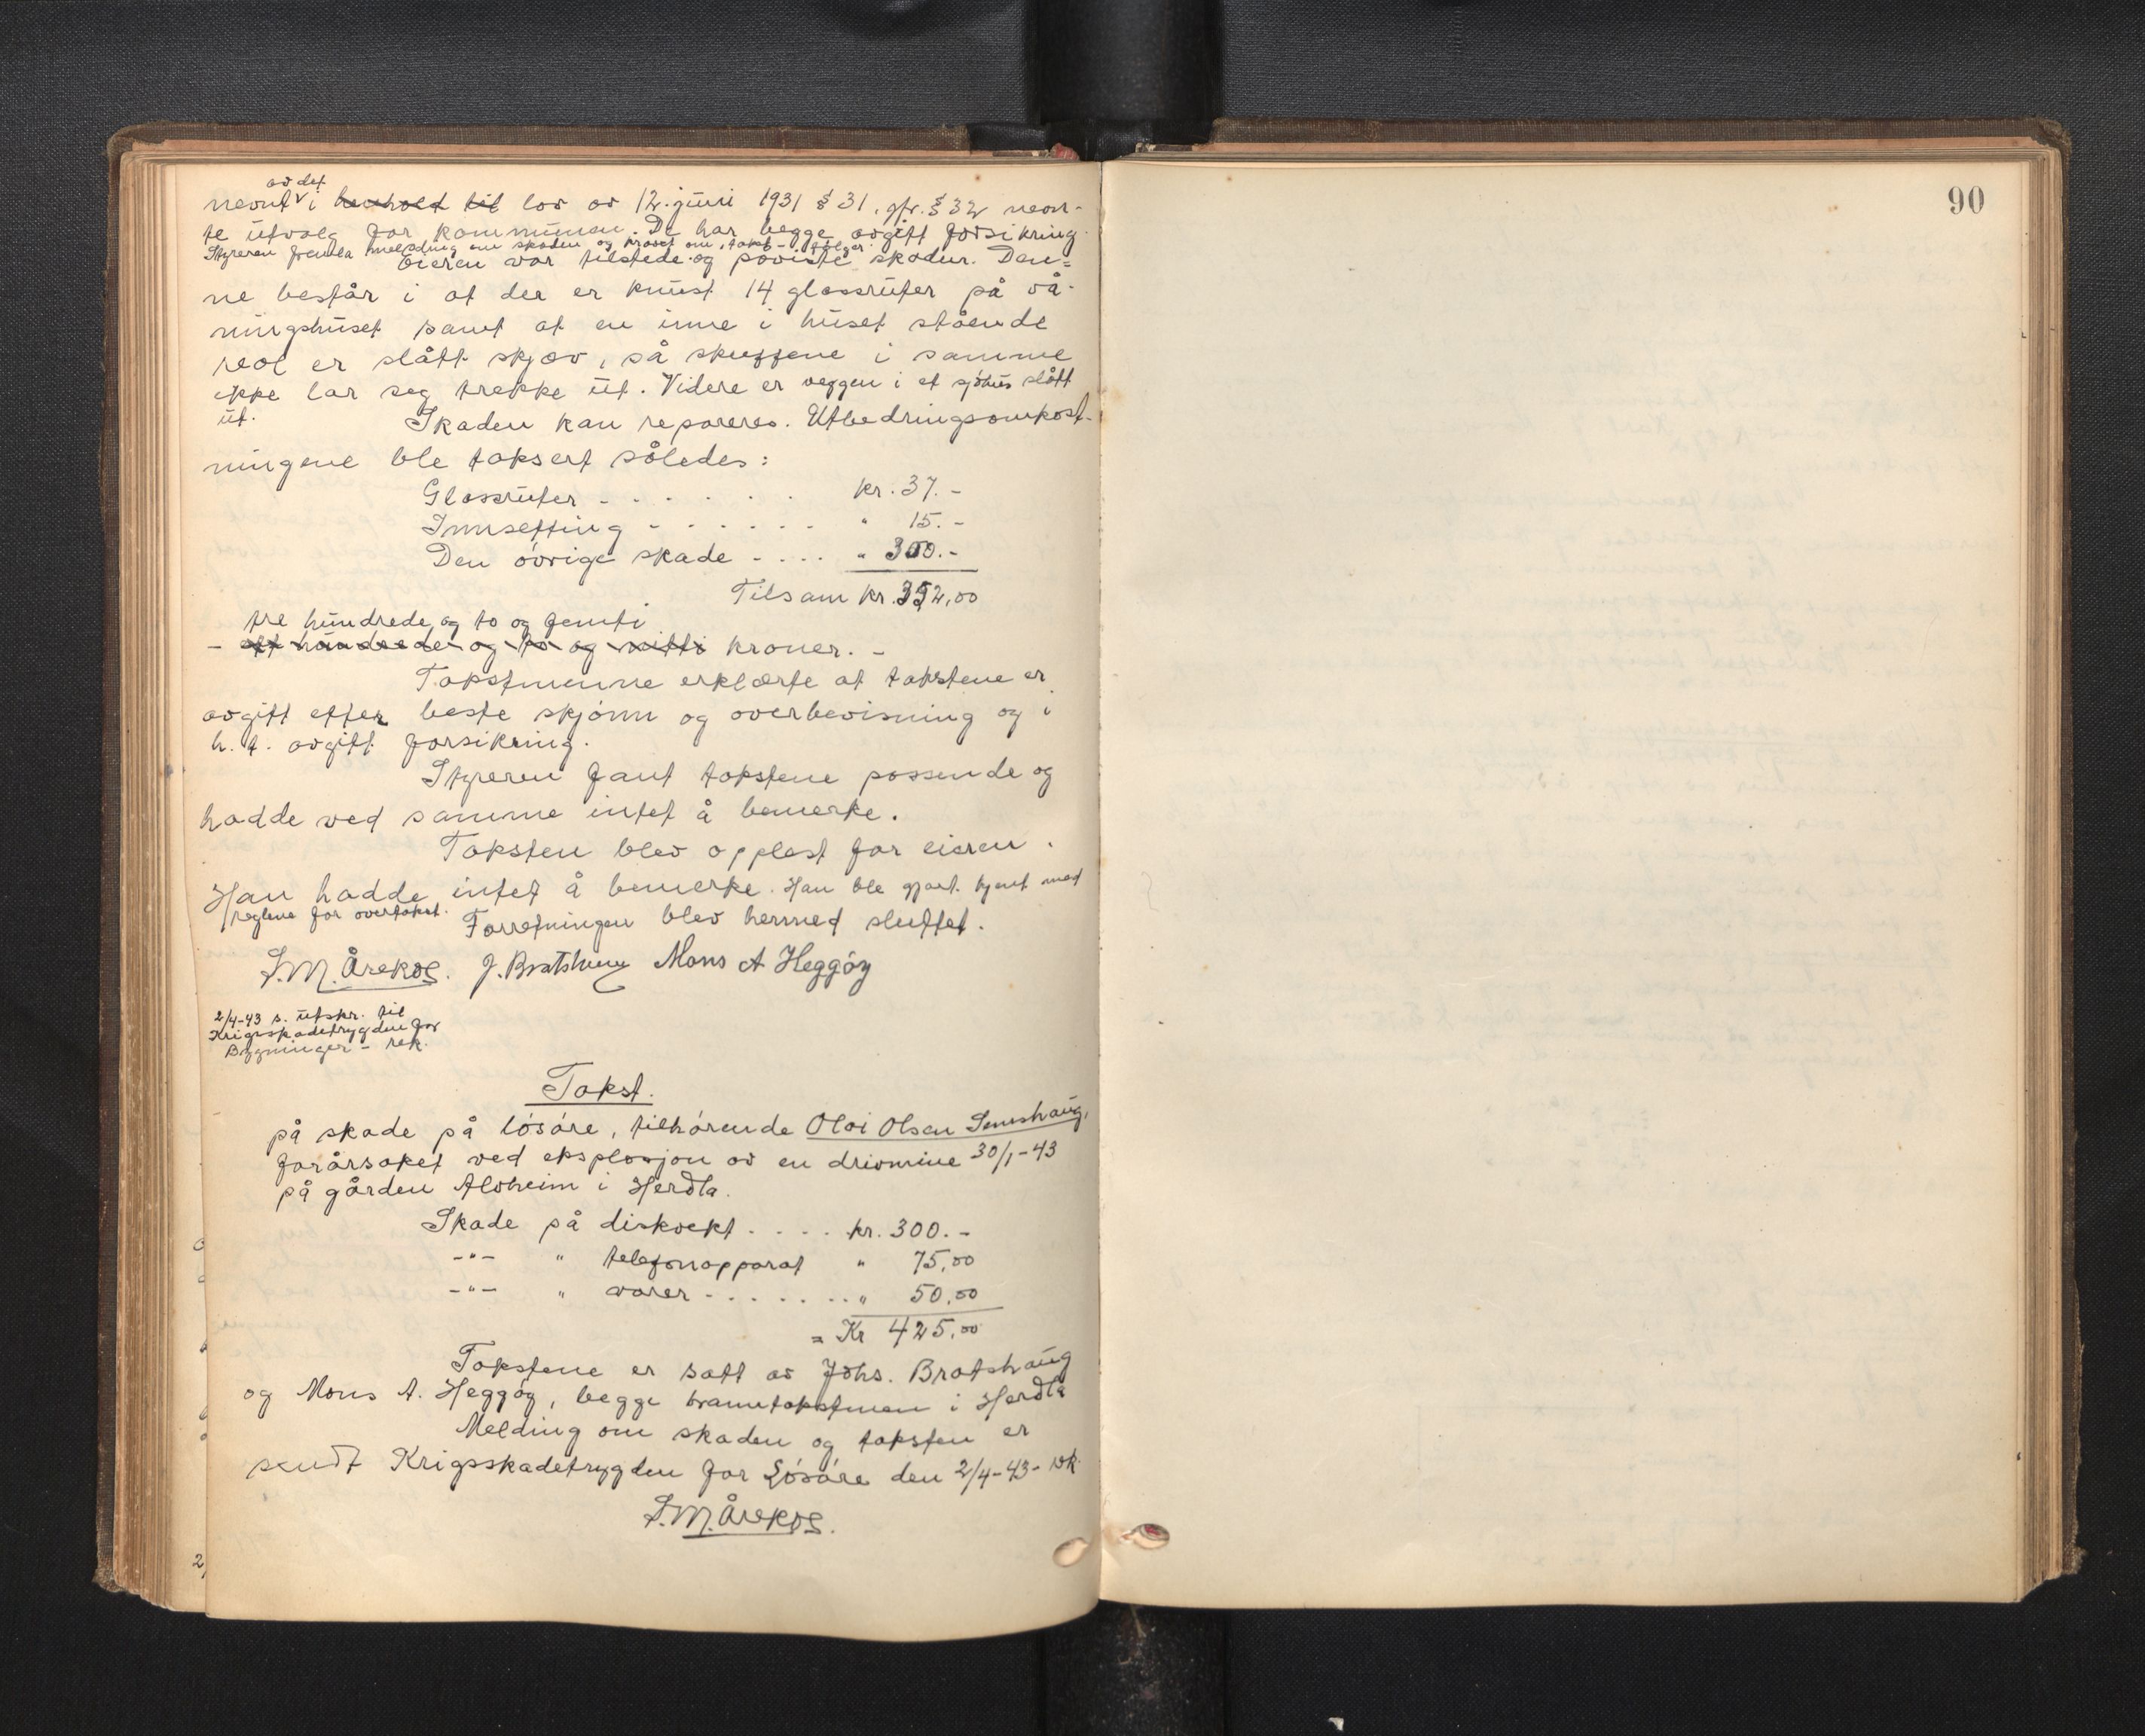 av det
nevnt i henhold til lov av 12. juni 1931 § 31, jfr. § 32 nevn-
te utvalg for kommunen. De har begge avgitt forsikring.
Styreren fremla melding om skaden og kravet om takst - følger.
Eieren var tilstede og påviste skaden. Den-
ne består i at der er knust 14 glassruter på vå-
ningshuset samt at en inne i huset stående
reol er slått skjev, så skuffene i samme
ikke lar seg trekke ut. Videre er veggen i et sjøhus slått
ut.
Skaden kan repareres. Utbedringsomkost-
ningene ble taksert således:
Glassruter - - - - - - kr. 37.-
Innsetting - - - - - - " 15.-
Den øvrige skade - . . . " 300.-
Tilsam kr. 352,00
tre hundrede og to og femti
- ett hundrede og to og nitti kroner. -
Takstmenne erklærte at takstene er
avgitt etter beste skjønn og overbevisning og i
h. t. avgitt forsikring.
Styreren fant takstene passende og
hadde ved samme intet å bemerke.
Taksten blev opplest for eieren.
Han hadde intet å bemerke. Han ble gjort kjent med
reglene for overtakst.
Forretningen blev hermed sluttet.
J. Bratshaug Mons A Heggøy
2/4-43 s. utskr. til
Krigsskadetrygden for
Bygninger - rek.
Takst.
på skade på løsøre, tilhørende Olai Olsen Senshaug,
forårsaket ved eksplosjon av en drivmine 30/1-43
på gården Alvheim i Herdla.
Skade på diskvekt . . . . kr. 300.-
-"- " telefonapparat " 75,00
-"- " varer - . . . . . . " 50,00
= Kr 425,00
Takstene er satt av Johs. Bratshaug
og Mons A. Heggøy, begge branntakstmen i Herdla
Melding om skaden og taksten er
sendt Krigsskadetrygden for Løsøre den 2/4-43- rek.
90